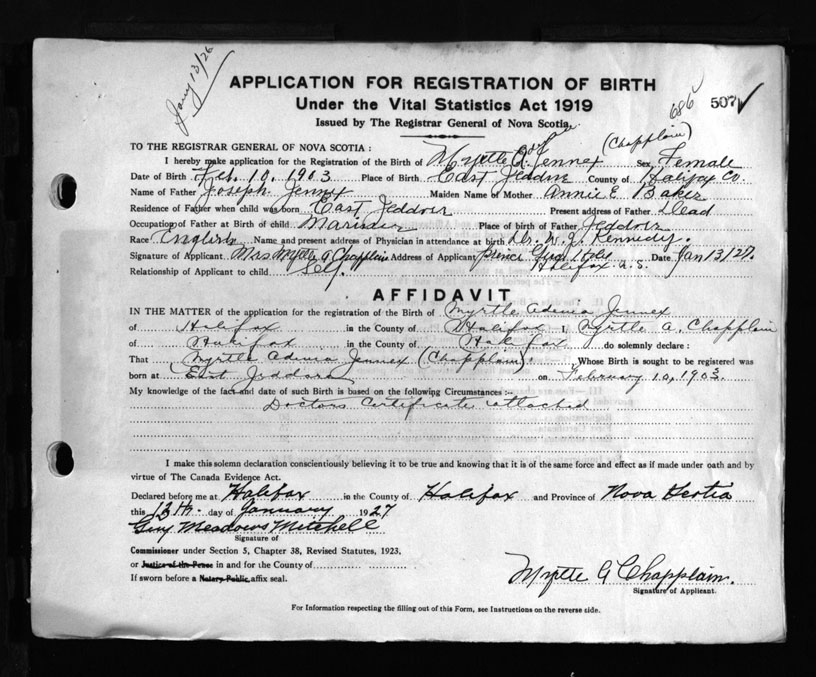 Jany 13/26
APPLICATION FOR REGISTRATION OF BIRTH
Under the Vital Statistics Act 1919
Issued by The Registrar General of Nova Scotia.
686
507
TO THE REGISTRAR GENERAL OF NOVA SCOTIA :
(Chapplain)
I hereby make application for the Registration of the Birth of Myrtle A. Jennex Sex Female
Date of Birth Feb. 10, 1903 Place of Birth East Jeddore County of Halifax Co.
Name of Father Joseph Jennex Maiden Name of Mother Annie E Baker
Residence of Father when child was born East Jeddore Present address of Father Dead
Occupation of Father at Birth of child Mariner Place of birth of Father Jeddore
Race English Name and present address of Physician in attendance at birth Dr. W. J. Kennedy.
Signature of Applicant Mrs Myrtle A Chapplain Address of Applicant Halifax N.S. Date Jan 13/27.
Relationship of Applicant to child Self.
AFFIDAVIT
IN THE MATTER of the application for the registration of the Birth of Myrtle Adema Jennex
of Halifax in the County of Halifax I, Myrtle A. Chapplain
of Halifax in the County of Halifax do solemnly declare :
That Myrtle Adema Jennex (Chapplain) Whose Birth is sought to be registered was
born at East Jeddore on February 10, 1903.
My knowledge of the fact and date of such Birth is based on the following Circumstances :-
Doctors Certificate attached
I make this solemn declaration conscientiously believing it to be true and knowing that it is of the same force and effect as if made under oath and by
virtue of The Canada Evidence Act.
Declared before me at Halifax in the County of Halifax and Province of Nova Scotia
this 13th. day of January 1927
Guy Meadows Mitchell
Signature of
Commissioner under Section 5, Chapter 38, Revised Statutes, 1923.
or Justice of the Peace in and for the County of
If sworn before a Notary Public affix seal.
Myrtle A Chapplain.
Signature of Applicant.
For Information respecting the filling out of this Form, see Instructions on the reverse side.